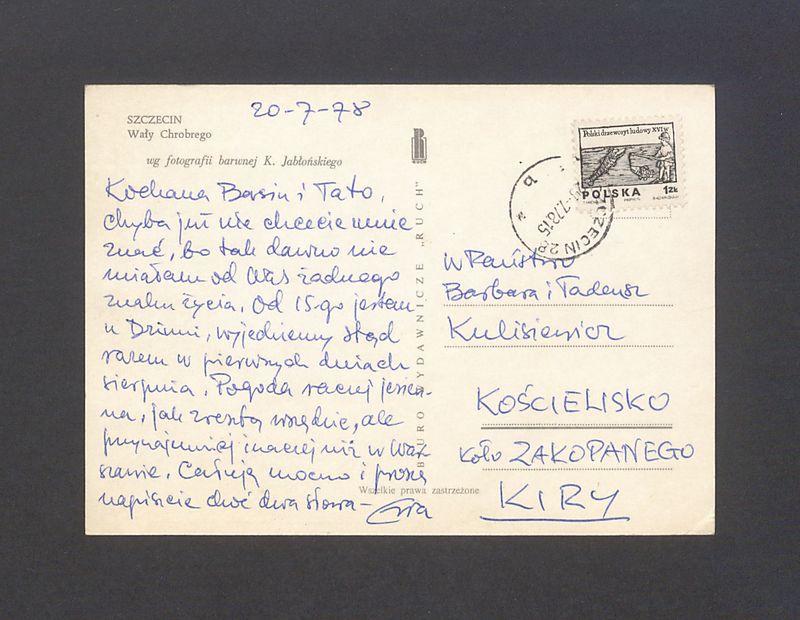 20-7-78
SZCZECIN
Wały Chrobrego
wg fotografii barwnej K. Jabłońskiego
Kochana Basiu i Tato,
chyba już nie chcecie mnie
znać, bo tak dawno nie
miałam od Was żadnego
znaku życia. Od 15-go jestem
u Dzinni, wyjedziemy stąd
razem w pierwszych dniach
sierpnia. Pogoda raczej jesien-
na, jak zresztą wszędzie, ale
przynajmniej inaczej niż w War
szawie. Całuję mocno i proszę
napiszcie choć dwa słowa –
Ewa
BIURO WYDAWNICZE „RUCH"
RUCH
Wszelkie prawa zastrzeżone
Polski drzeworyt ludowy XVI w
POLSKA
1zł
SZCZECIN 2
W Państwo
Barbara i Tadeusz
Kulisiewicz
KOŚCIELISKO
koło ZAKOPANEGO
KIRY